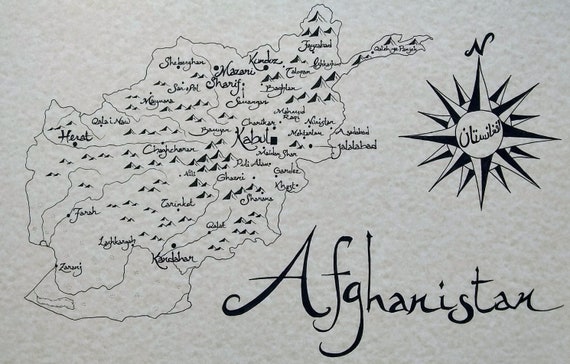 N
افغانستان
Faizabad
Qaleh-ye Panjeh
Kunduz
Sheberghan
Mazari
Sharif
Taloqan
Baghlan
Sar-e Pol
Samangan
Maymana
Mahmud
Raqi
Qala i Naw
Charikar
Nuristan
Bamyan
Mehterlam
Asadabad
Herat
Kabul
Jalalabad
Chaghcharan
Maidan Shar
Puli Alam
Nili
Ghazni
Gardez
Khost
Sharana
Farah
Tarinkot
Qalat
Lashkargah
Kandahar
Zaranj
Afghanistan